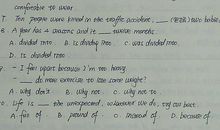 comfortable to wear
7. Ten people were killed in the traffic accident, ___ (包括) two babies
8. A year has 4 seasons and it ___ twelve months.
A. divided into B. is divided into C. was divided into
D. is divided into
9. - I fall apart because I'm too heavy.
- ___ do more exercise to lose some weight?
A. why don't B. why not C. why not to
10. Life is ___ the unexpected, whatever we do, try our best.
A. full of B. proud of C. instead of D. because of